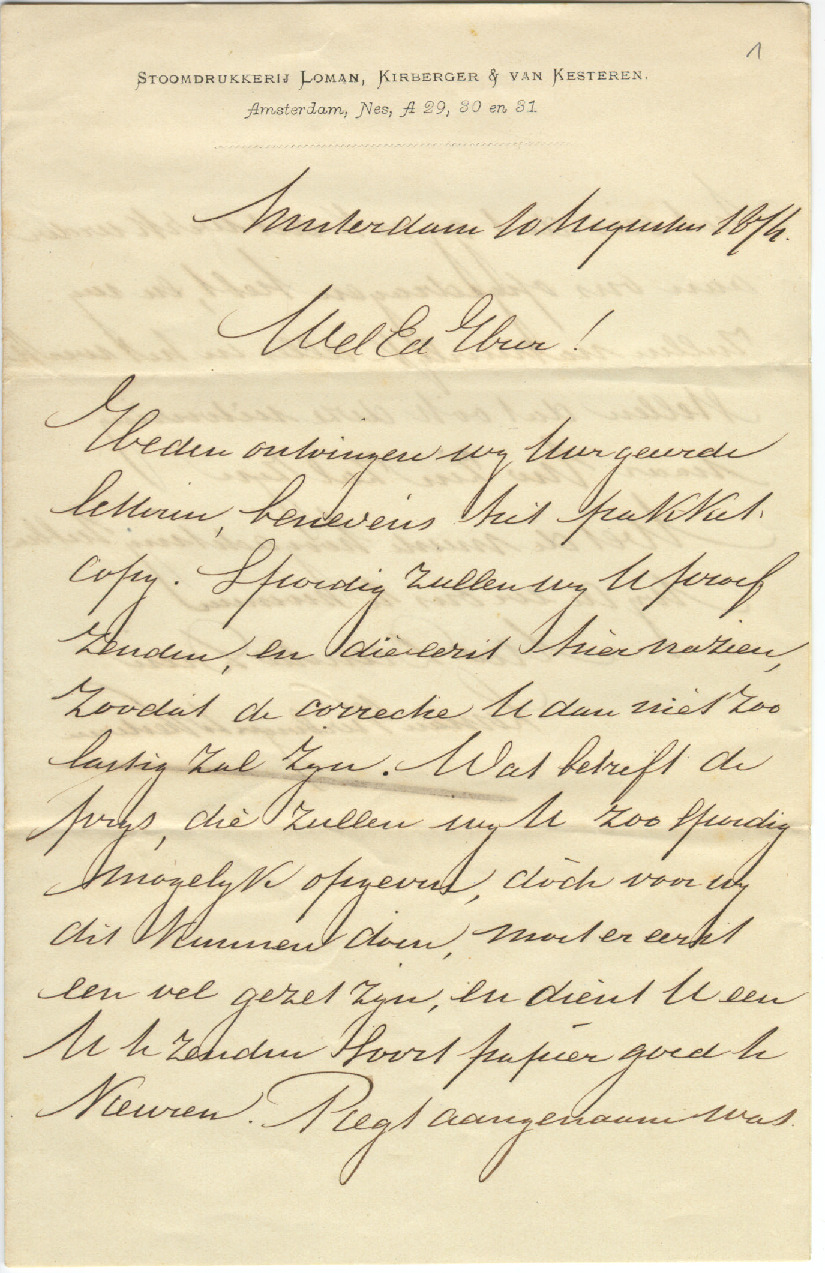 1
STOOMDRUKKERIJ LOMAN, KIRBERGER & VAN KESTEREN.
Amsterdam, Nes, A 29, 30 en 31
Amsterdam 10 Augustus
WelEd Heer!
Heden ontvingen wy Uw geeerde
letteren, benevens het pakket
copy. Spoedig zullen wy U proef
zenden, en die eerst hier nazien,
zoodat de correctie U dan niet zoo
lastig zal zyn. Wat betreft de
prys, die zullen wy U zoo spoedig
mogelyk opgeven, doch voor wy
dit kunnen doen, moet er eerst
een vel gezet zyn, en dient U een
U te zenden soort papier goed te
keuren. Regt aangenaam was